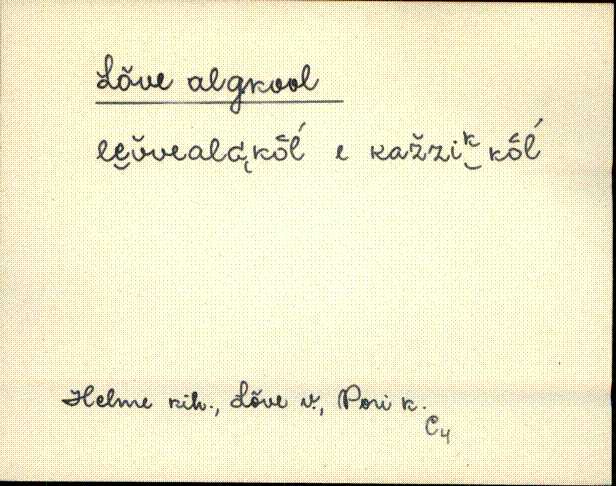 Lõve algkool
leǭvealɢ̨kō̬ĺ e kažziᵏ kō̬ĺ
Helme kih., Lõve v., Pori k.
C4